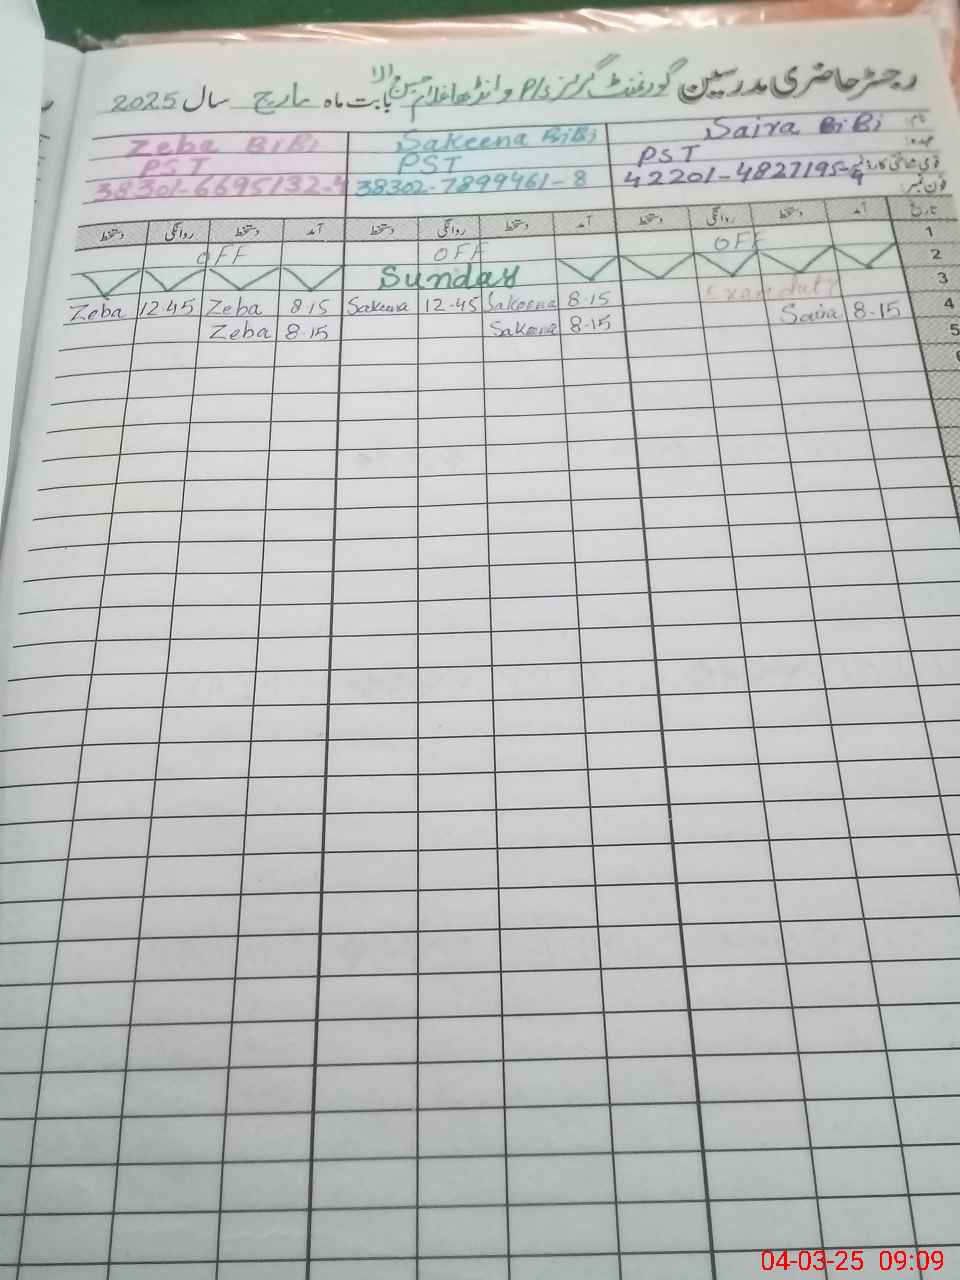 رجسٹر حاضری مدرسین گورنمنٹ گرلز P/S وانڈھا غلام حسین والا بابت ماہ مارچ سال 2025
نام Saira BiBi Sakeena BiBi Zeba BiBi
عہدہ PST PST PST
قومی شناختی کارڈ 42201-4827195- 38302-7899461-8 38301-6695132-4
فون نمبر
تاریخ آمد دستخط روانگی دستخط آمد دستخط روانگی دستخط آمد دستخط روانگی دستخط
1 OFF OFF OFF
2 Sunday
3 Exam duty 8-15 Sakeena 12-45 Sakeena 8-15 Zeba 12-45 Zeba
4 8-15 Saira 8-15 Sakeena 8-15 Zeba
5
6
04-03-25 09:09